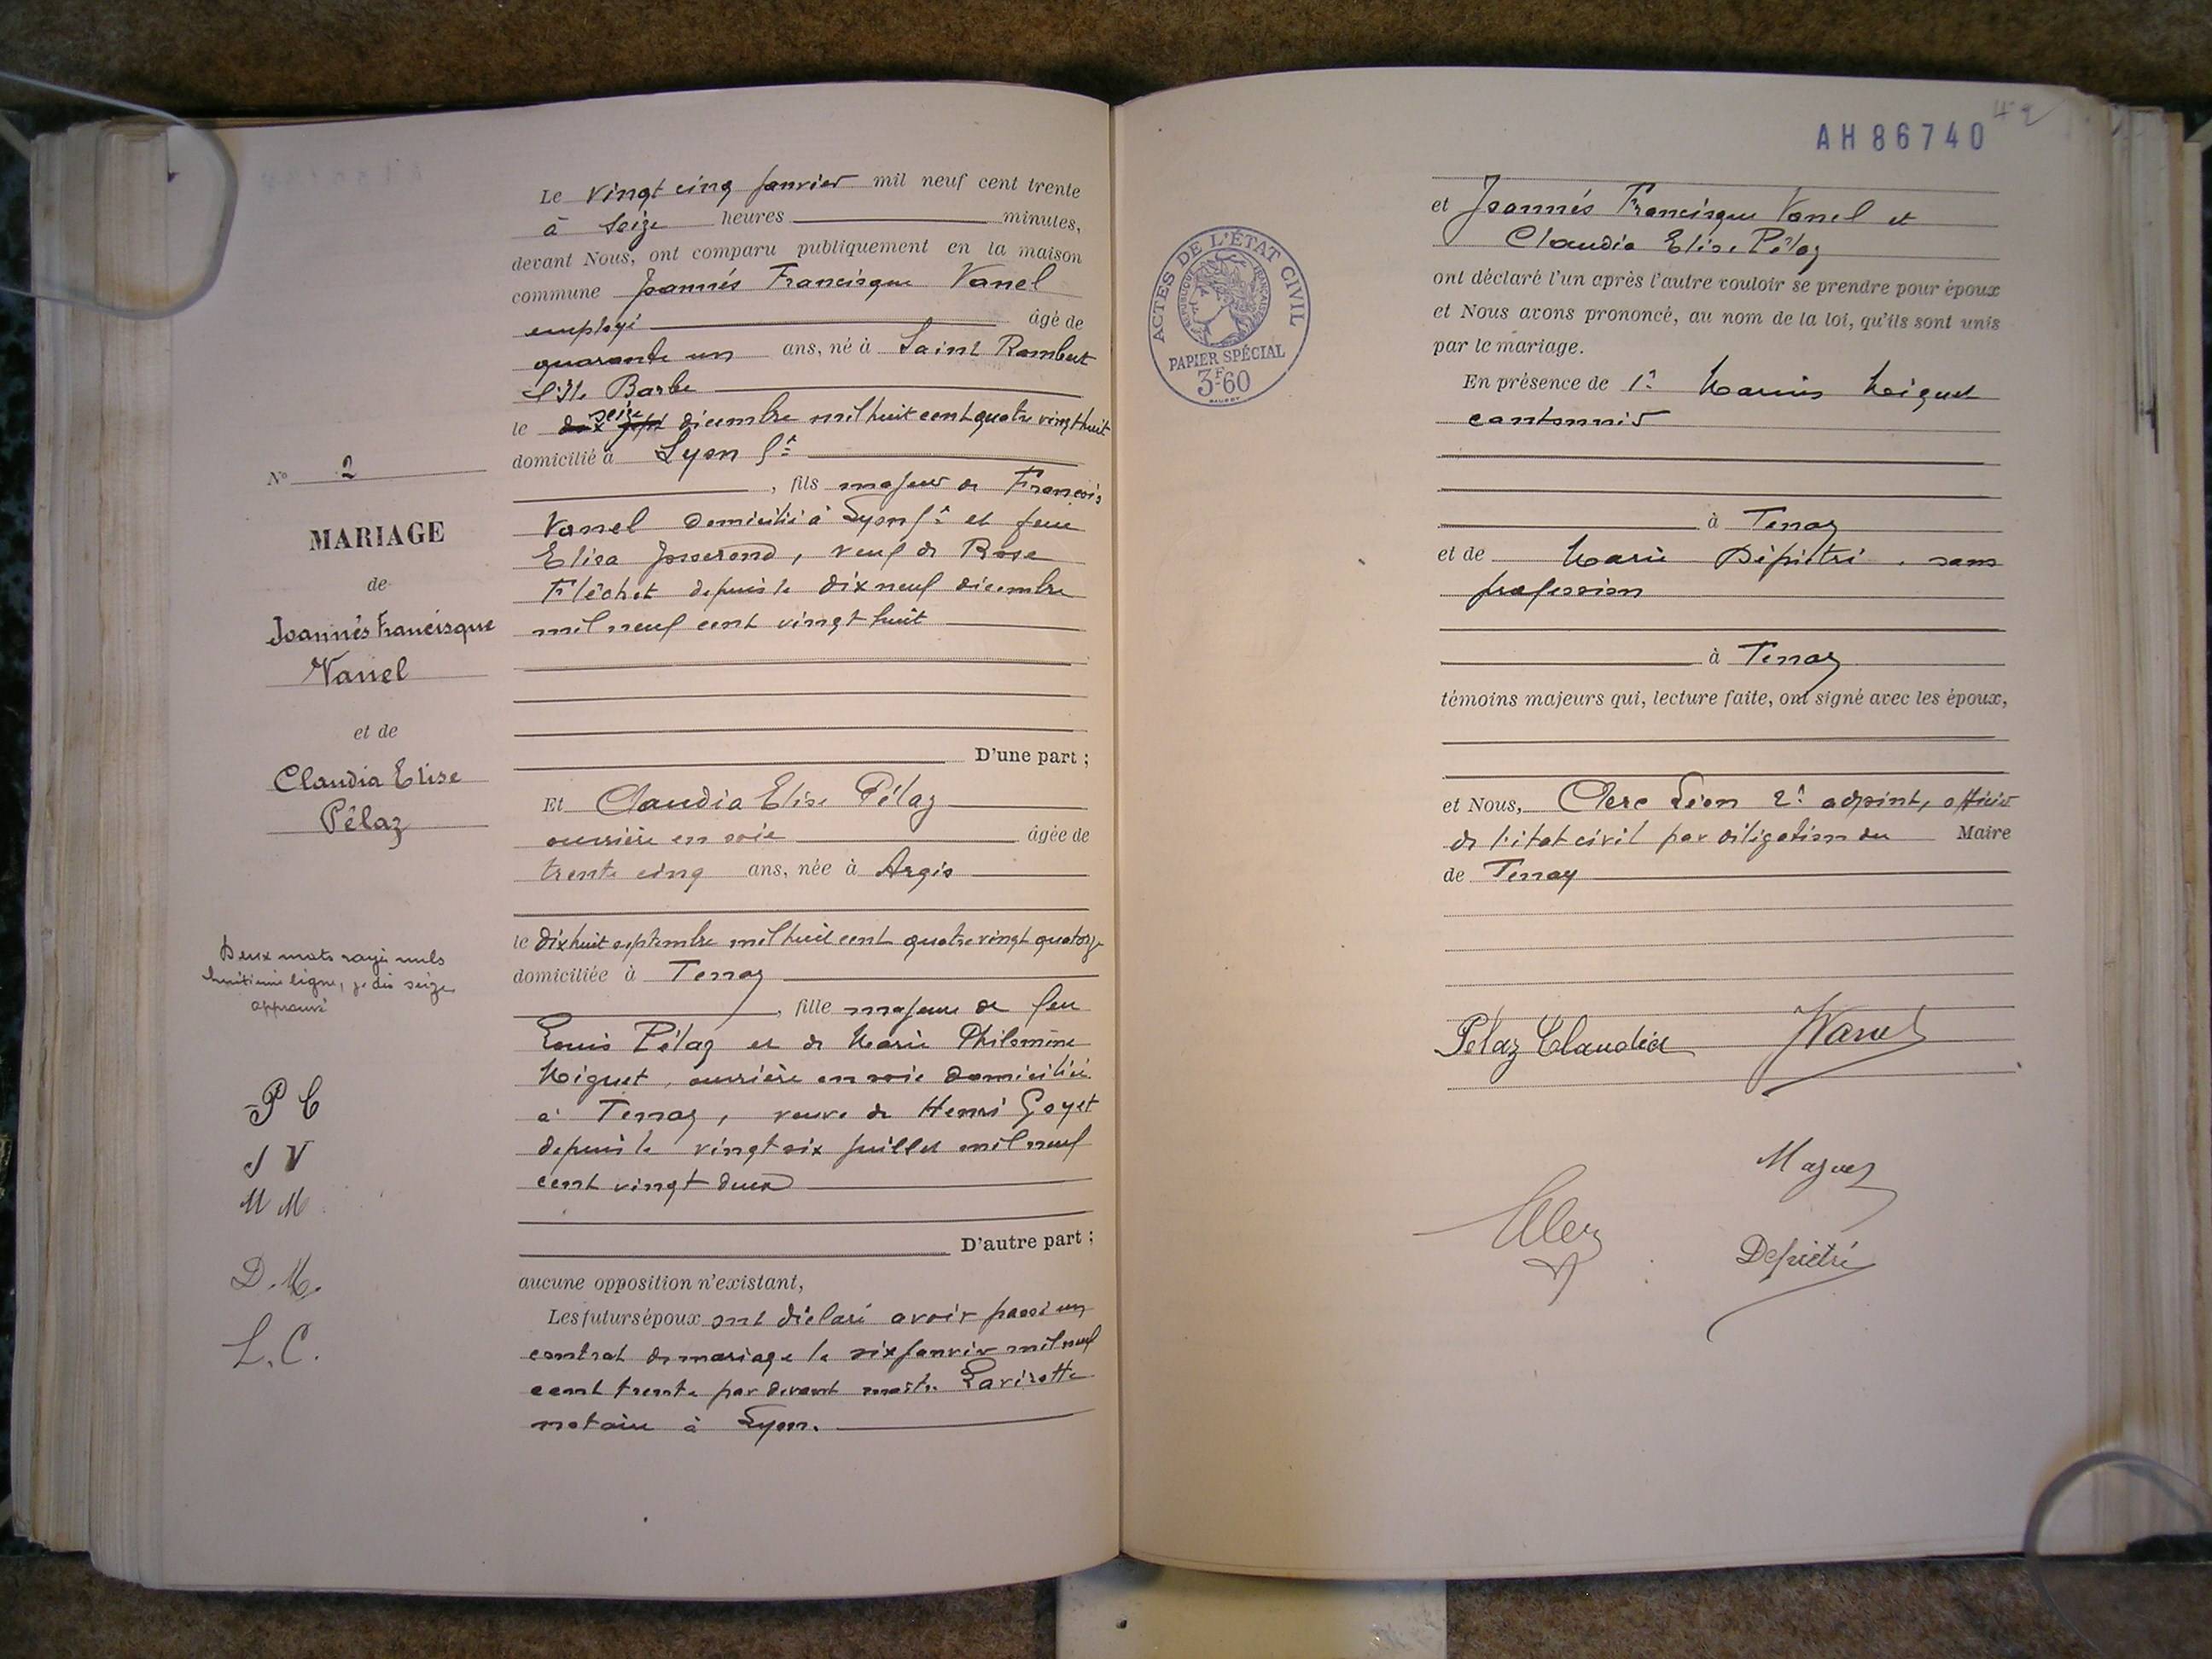 Le vingt cinq janvier mil neuf cent trente
à seize heures minutes,
devant Nous, ont comparu publiquement en la maison
commune Joannés Francisque Vanel
employé âgé de
quarante un ans, né à Saint Rambert
l'Ile Barbe
seize
le dix sept décembre mil huit cent quatre vingt huit
domicilié à Lyon
, fils majeur de François
Vanel domicilié à Lyon et feue
Elisa Josserand, veuf de Rose
Fléchet depuis le dix neuf décembre
mil neuf cent vingt huit
D'une part ;
Nº 2
MARIAGE
de
Joannés Francisque
Vanel
et de
Claudia Elise
Pélaz
Et Claudia Elise Pélaz
ouvrière en soie âgée de
trente cinq ans, née à Argis
le dix huit septembre mil huit cent quatre vingt quatorze
domiciliée à Tenay
, fille majeure de feu
Louis Pélaz et de Marie Philomène
Miguet, ouvrière en soie domiciliée
à Tenay, veuve de Henri Goyet
depuis le vingt six juillet mil neuf
cent vingt deux
D'autre part ;
Deux mots rayés nuls
huitième ligne, je dis seize
approuvé
P C
J V
M M
D. M.
L. C.
aucune opposition n'existant,
Les futurs époux ont déclaré avoir passé un
contrat de mariage le six janvier mil neuf
cent trente par devant maître Lavirotte
notaire à Lyon.
42
AH 86740
ACTES DE L'ÉTAT CIVIL
RÉPUBLIQUE FRANÇAISE
PAPIER SPÉCIAL
3F60
et Joannés Francisque Vanel et
Claudia Elise Pélaz
ont déclaré l'un après l'autre vouloir se prendre pour époux
et Nous avons prononcé, au nom de la loi, qu'ils sont unis
par le mariage.
En présence de 1º Marius Miguet
cantonnier
à Tenay
et de Marie Dépiétri, sans
profession
à Tenay
témoins majeurs qui, lecture faite, ont signé avec les époux,
et Nous, Clerc Léon 2e adjoint, officier
de l'état civil par délégation du Maire
de Tenay
Pélaz Claudia JVanel
Depiétri